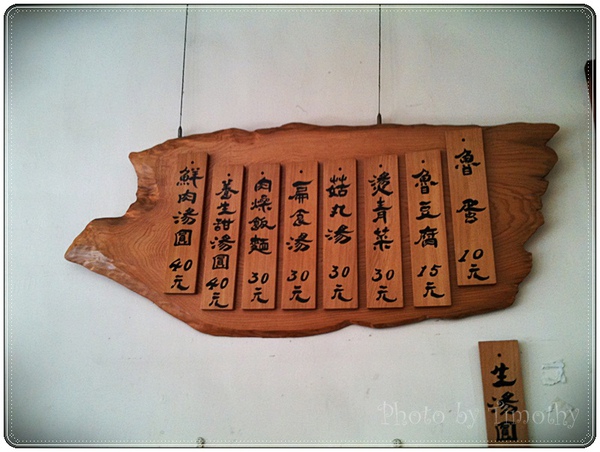 魯蛋 10元
魯豆腐 15元
燙青菜 30元
菇丸湯 30元
扁食湯 30元
肉燥飯麵 30元
養生甜湯圓 40元
鮮肉湯圓 40元
生湯圓
Photo by Timothy